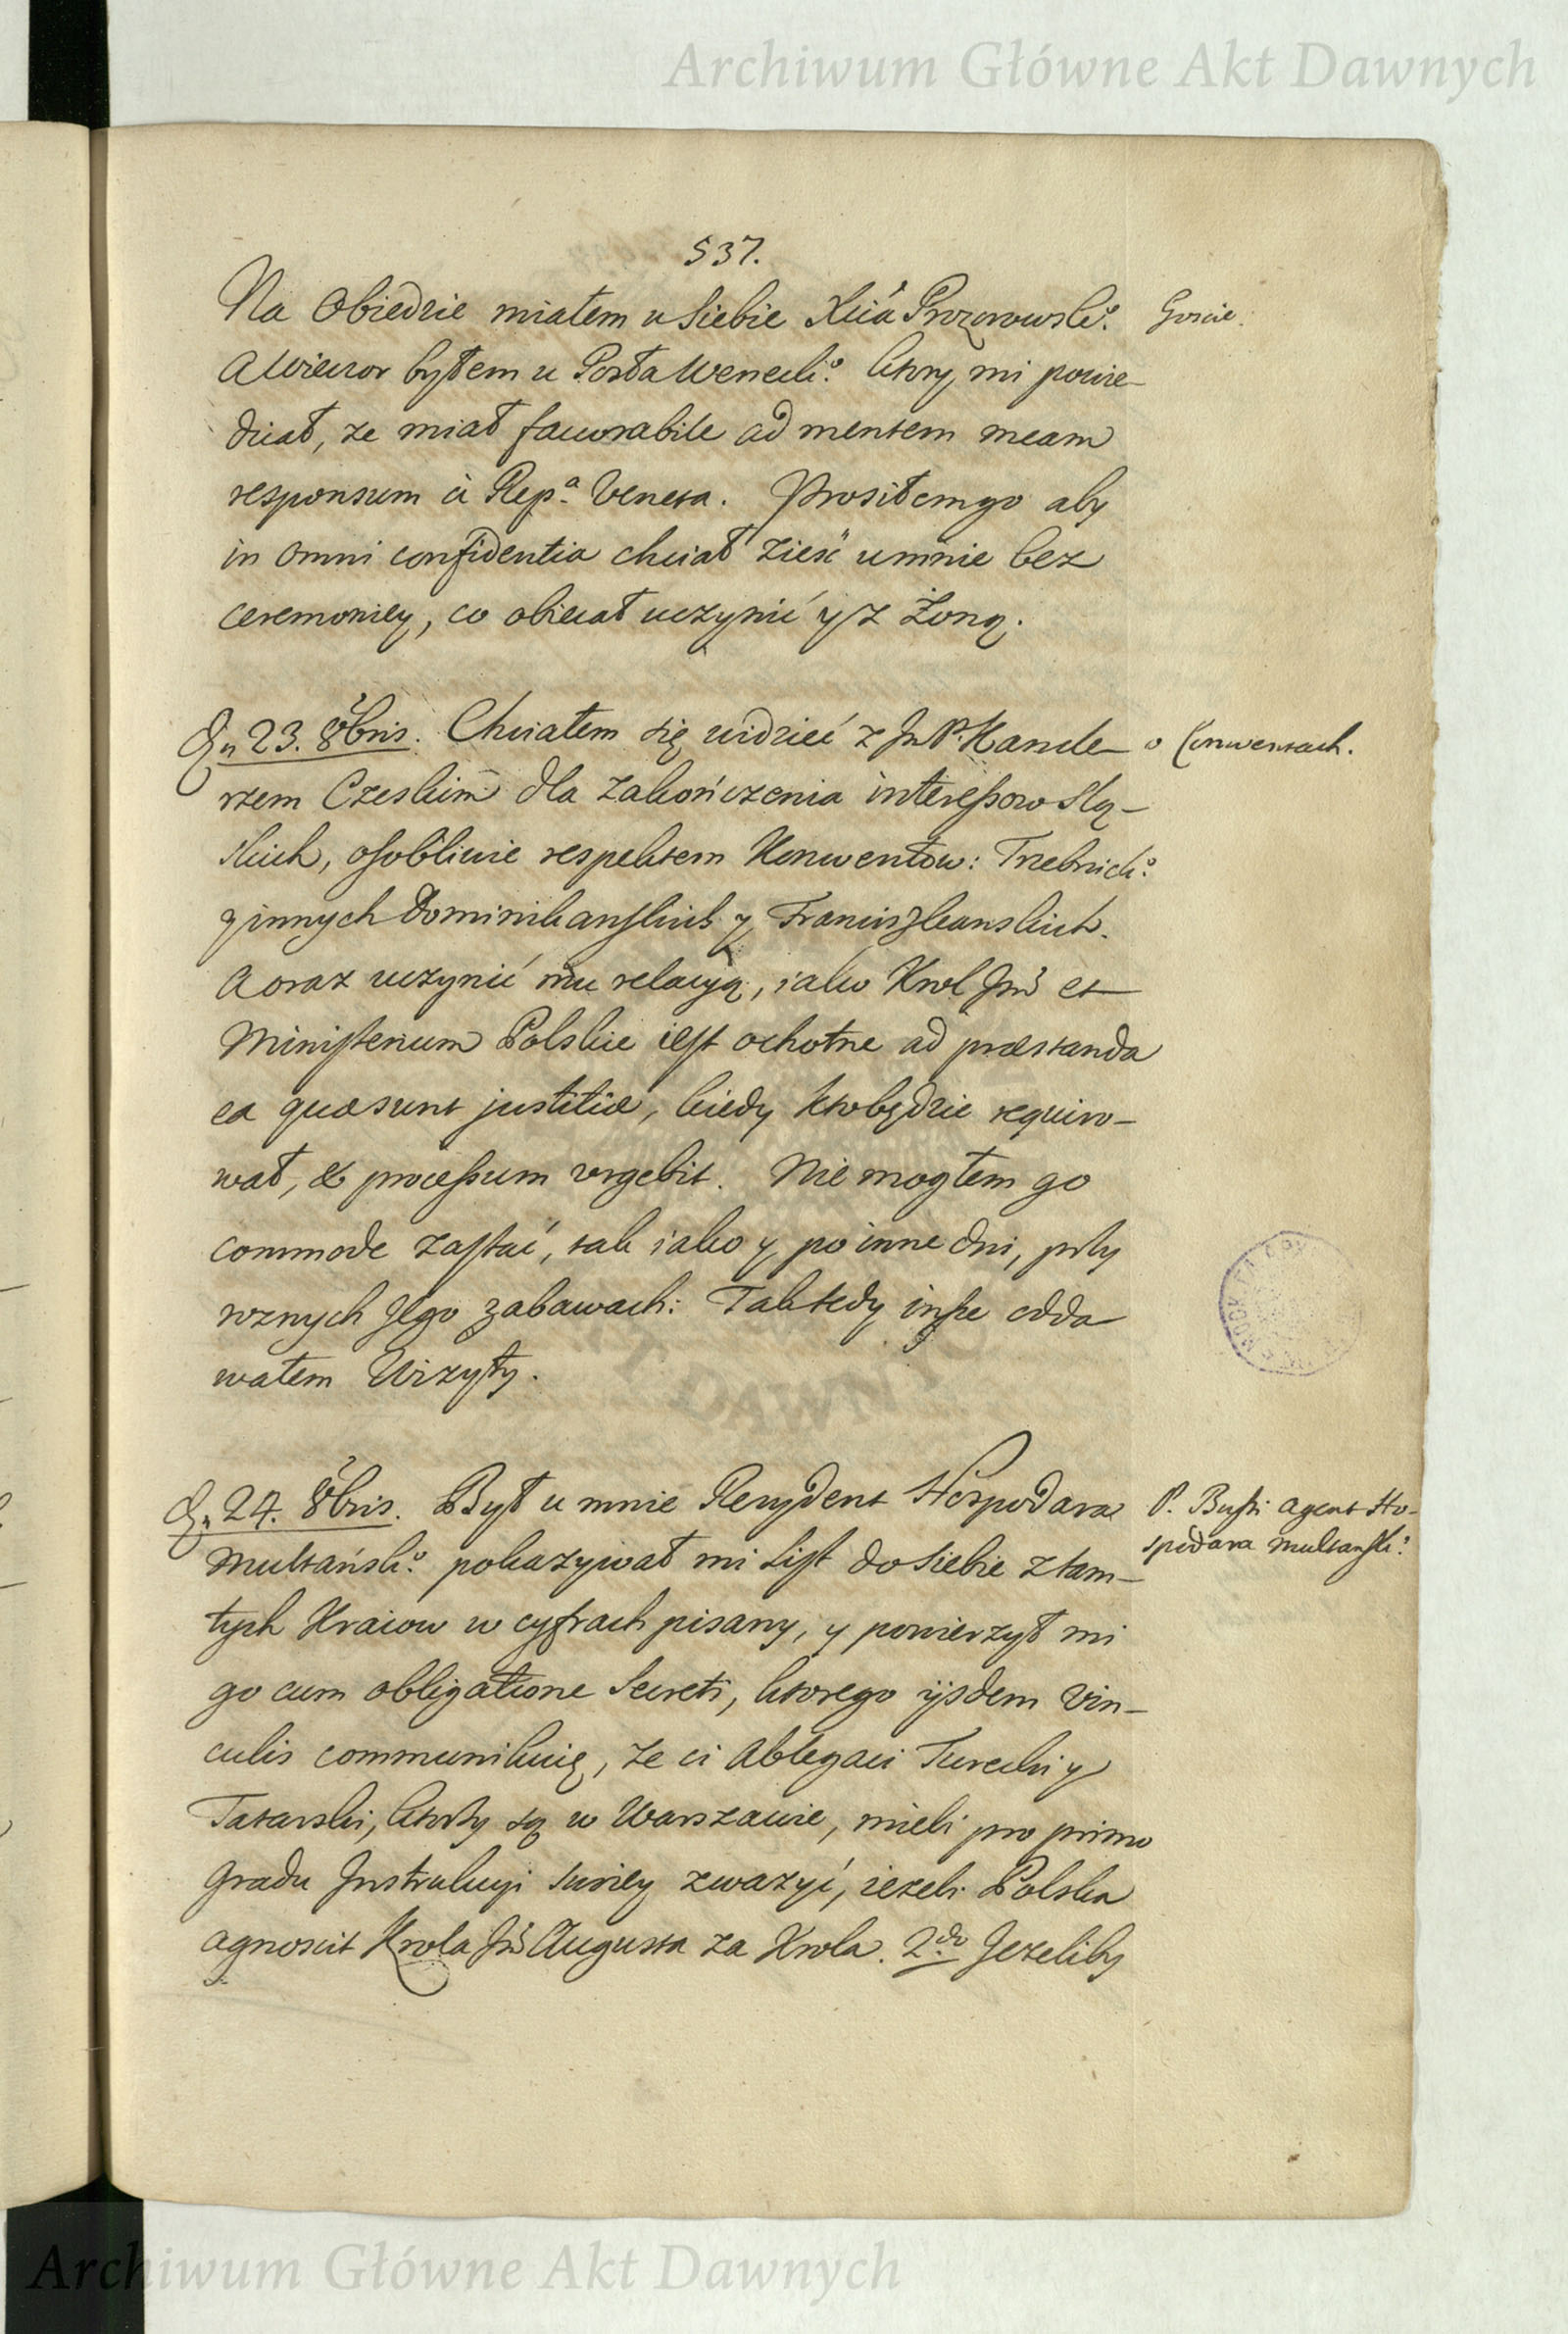 Archiwum Główne Akt Dawnych
537.
Na Obiedzie miałem u siebie Xcia Prozorowskiº. Goscie.
A wieczor byłem u Posła Weneckiº. ktory mi powie-
dział, ze miał favorabile ad mentem meam
responsum à Repª. Veneta. Prosiłem go aby
in omni confidentia chciał zieść u mnie bez
ceremoniey, co obiecał uczynić y z Żoną.
Dn 23. 8bris. Chciałem się widzieć z Jm P. Kancle- o Konwentach.
rzem Czeskim dla zakończenia interessow Slą-
skich, osobliwie respektem Konwentow: Trzebnickº.
y innych Dominikanskich y Franciszkanskich.
A oraz uczynić mu relacyą, iako Krol Jmć et
Ministerium Polskie iest ochotne ad præstanda
ea quæ sunt justitiæ, kiedy kto będzie requiro-
wał, & processum urgebit. Nie mogłem go
commode zastać, tak iako y po inne dni, przy
roznych Jego zabawach: Tak tedy insze odda
wałem Wizyty.
Dn 24. 8bris. Był u mnie Rezydent Hospodara P. Bussi agent Ho-
Multańskº. pokazywał mi List do siebie z tam- spodara Multanskº.
tych Kraiow w cyfrach pisany, y powierzył mi
go cum obligatione secreti, ktorego ijsdem vin-
culis communikuię, ze ci Ablegaci Turecki y
Tatarski, ktorzy są w Warszawie, mieli pro primo
gradu Instrukcyi swoiey zwazyć, iezeli Polska
agnoscit Krola Jmć Augusta za Krola. 2do Jezeliby
Archiwum Główne Akt Dawnych